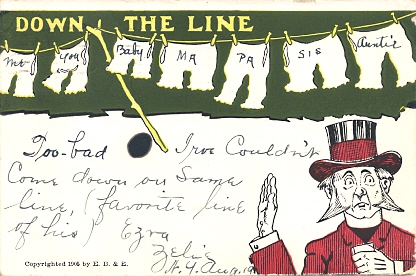 DOWN THE LINE
Me You Baby MA PA SIS Auntie
Too-bad Irve Couldn't
Come down on Same
line, (favorite line
of his) Ezra
Zelie
N.Y. Aug.
Copyrighted 1905 by E. D. & E.